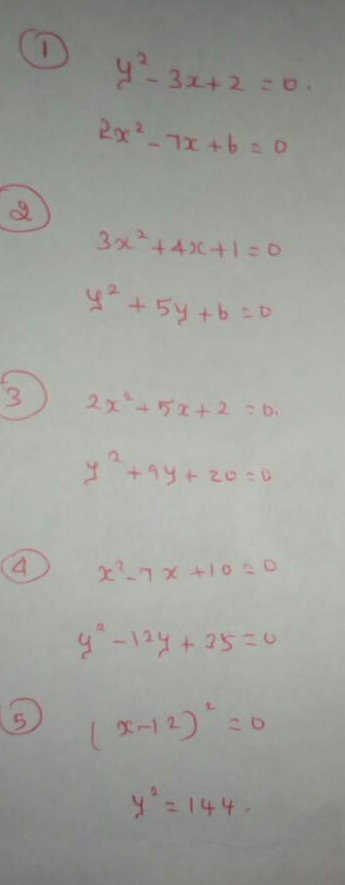 ①
y² - 3x + 2 = 0.
2x² - 7x + 6 = 0
②
3x² + 4x + 1 = 0
y² + 5y + 6 = 0
③
2x² + 5x + 2 = 0.
y² + 9y + 20 = 0
④
x² - 7x + 10 = 0
y² - 12y + 35 = 0
⑤
(x - 12)² = 0
y² = 144.